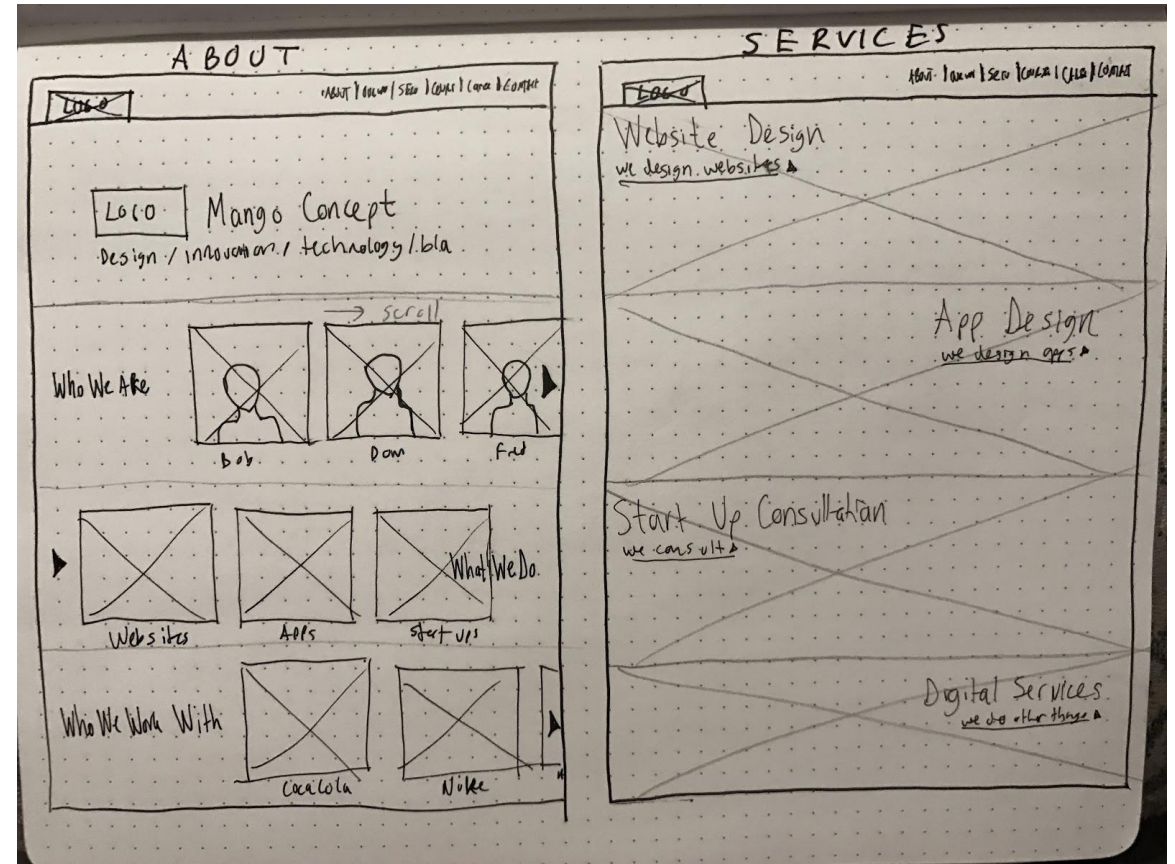 ABOUT
LOGO
ABOUT | | SERV | | | CONTACT
LOGO Mango Concept
Design / innovation / technology / bla
→ scroll
Who We Are
Bob Dom Fred
What We Do
Websites Apps Start ups
Who We Work With
CocaCola Nike
SERVICES
LOGO
ABOUT | | SERV | | | CONTACT
Website Design
we design websites
App Design
we design apps
Start Up Consultation
we consult
Digital Services
we do other things